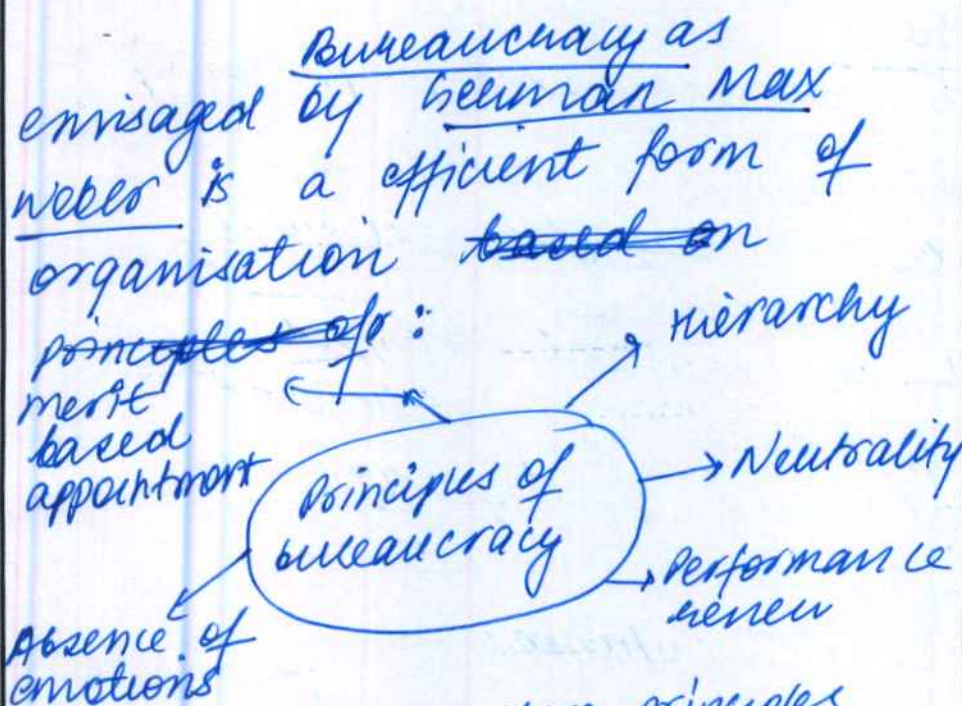 Bureaucracy as
envisaged by German Max
Weber is a efficient form of
organisation based on
principles of :
Hierarchy
merit
based
appointment
Neutrality
Principles of
bureaucracy
Performance
review
Absence of
emotions
principles